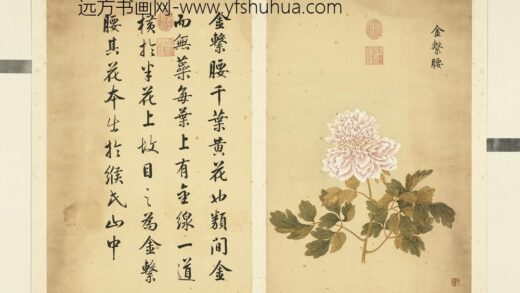 远方书画网-www.yfshuhua.com
金繫腰
金繫腰千葉黃花也類間金
而無蘂每葉上有金線一道
橫於半花上故目之為金繫
腰其花本出於緱氏山中